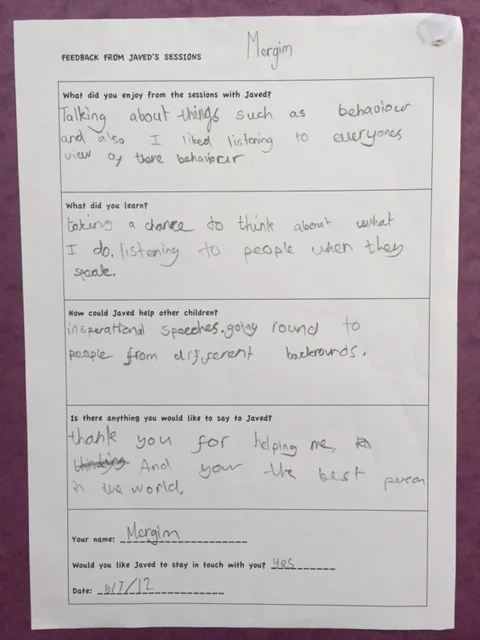 Mergim
FEEDBACK FROM JAVED'S SESSIONS
What did you enjoy from the sessions with Javed?
Talking about things such as behaviour
and also I liked listening to everyones
view of there behaviour
What did you learn?
taking a chance to think about what
I do. listening to people when they
speak.
How could Javed help other children?
insperational speeches. going round to
people from different backrounds.
Is there anything you would like to say to Javed?
thank you for helping me,
And your the best person
in the world.
Your name: Mergim
Would you like Javed to stay in touch with you? yes
Date: /7/12